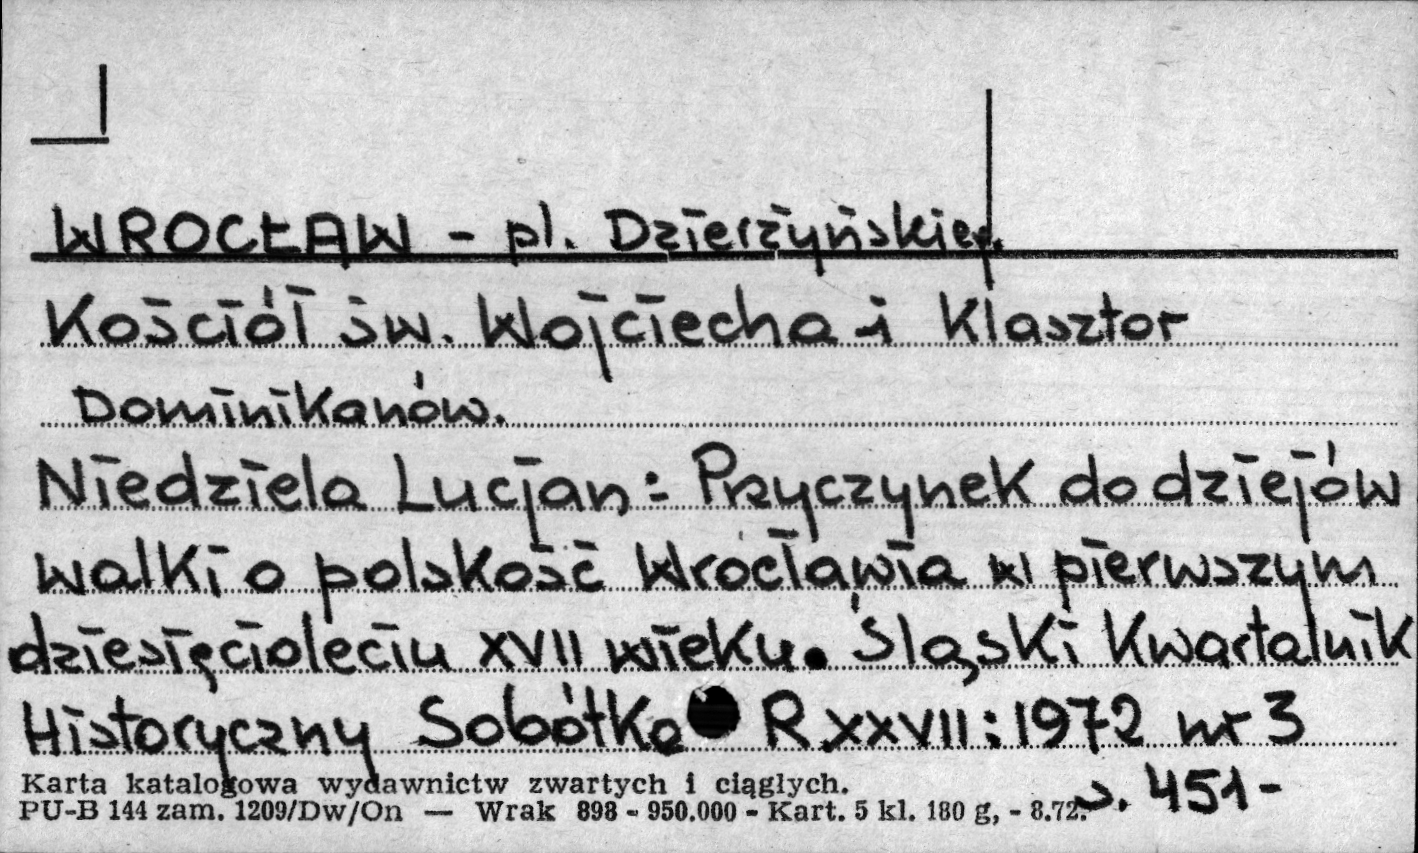 WROCŁAW - pl. Dzierżyńskieg.
Kościół św. Wojciecha i Klasztor
Dominikanów.
Niedziela Lucjan: Przyczynek do dziejów
walki o polskość Wrocławia w pierwszym
dziesięcioleciu XVII wieku. Śląski Kwartalnik
Historyczny Sobótka R XXVII: 1972 nr 3
s. 451-
Karta katalogowa wydawnictw zwartych i ciągłych.
PU-B 144 zam. 1209/Dw/On — Wrak 898 - 950.000 - Kart. 5 kl. 180 g, - 8.72.